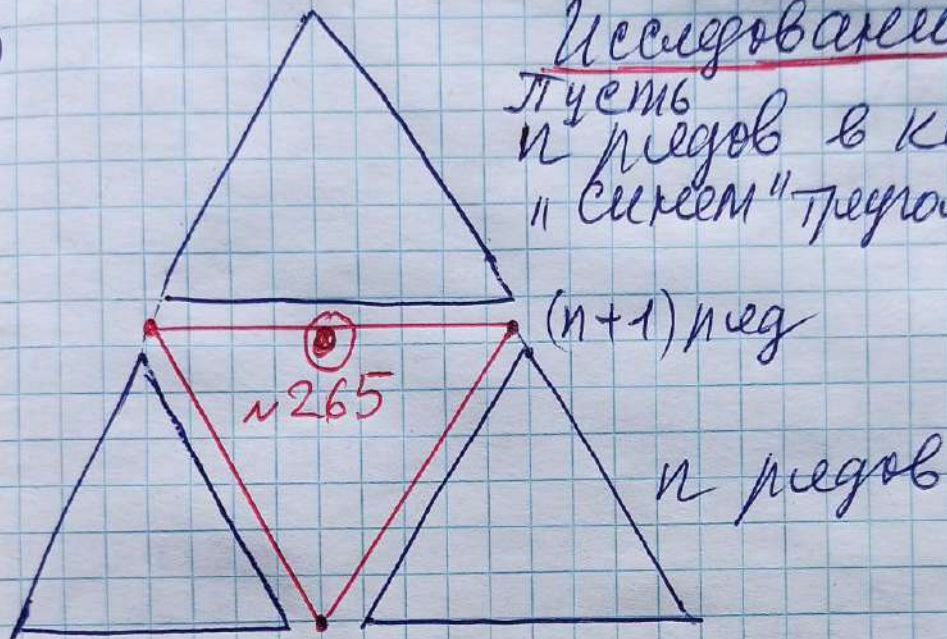 )
Исследовани
Пусть
n рядов в к
"Синем" треуго
(n+1) ряд
№265
n рядов